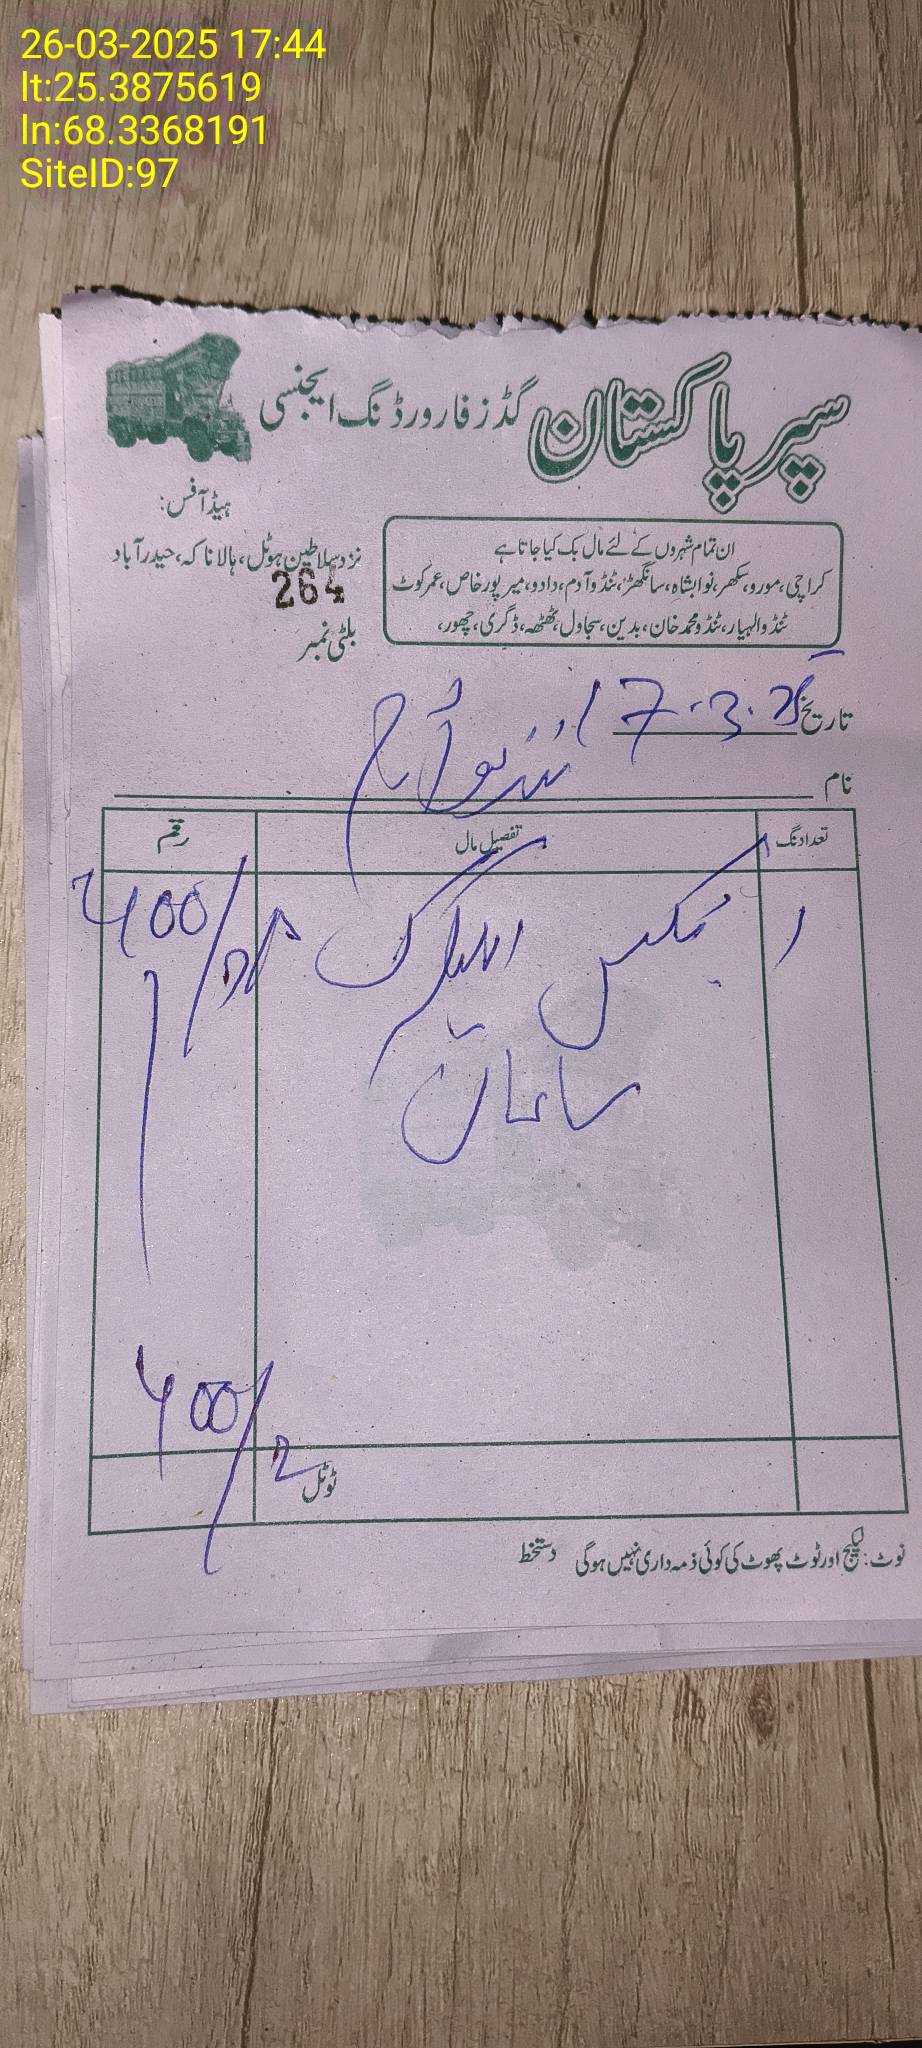 26-03-2025 17:44
lt:25.3875619
ln:68.3368191
SiteID:97
سپر پاکستان گڈز فارورڈنگ ایجنسی
ہیڈ آفس:
نزد سلاطین ہوٹل، ہالا ناکہ، حیدرآباد
264
بلٹی نمبر
ان تمام شہروں کے لئے مال بک کیا جاتا ہے
کراچی، مورو، سکھر، نوابشاہ، سانگھڑ، ٹنڈو آدم، دادو، میرپور خاص، عمرکوٹ
ٹنڈوالہیار، ٹنڈو محمد خان، بدین، سجاول، ٹھٹھہ، ڈگری، چھور،
تاریخ 17.3.25
نام ٹنڈو آدم
تعداد نگ تفصیل مال رقم
1 بکس الیکٹرک 400/
سامان
400/
ٹوٹل
نوٹ: لیکیج اور ٹوٹ پھوٹ کی کوئی ذمہ داری نہیں ہوگی دستخط